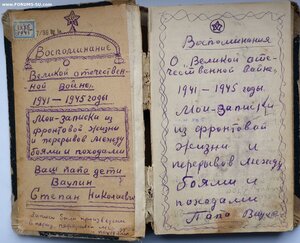 www.FORUMS-SU.com
Воспоминание
О
Великой отечествен-
-ной войне.
1941 — 1945 годы
Мои-записки
из фронтовой жизни
и перерывов между
боями и походами
Ваш папа дети
Ваулин
Степан Николаевич
Записки были произведены
Воспоминания
О. Великой оте-
чественной Войне.
1941 - 1945 годы.
Мои-Записки
из фронтовой
жизни и
перерывов между
боями и
походами
Папа